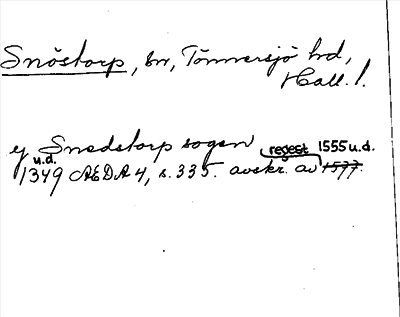 Snöstorp, sn, Tönnersjö hd,
Hall. l.
y Snedstorp sogen regest 1555 u.d.
u.d.
1349 AEDA 4, s. 335. avskr. av 1577.